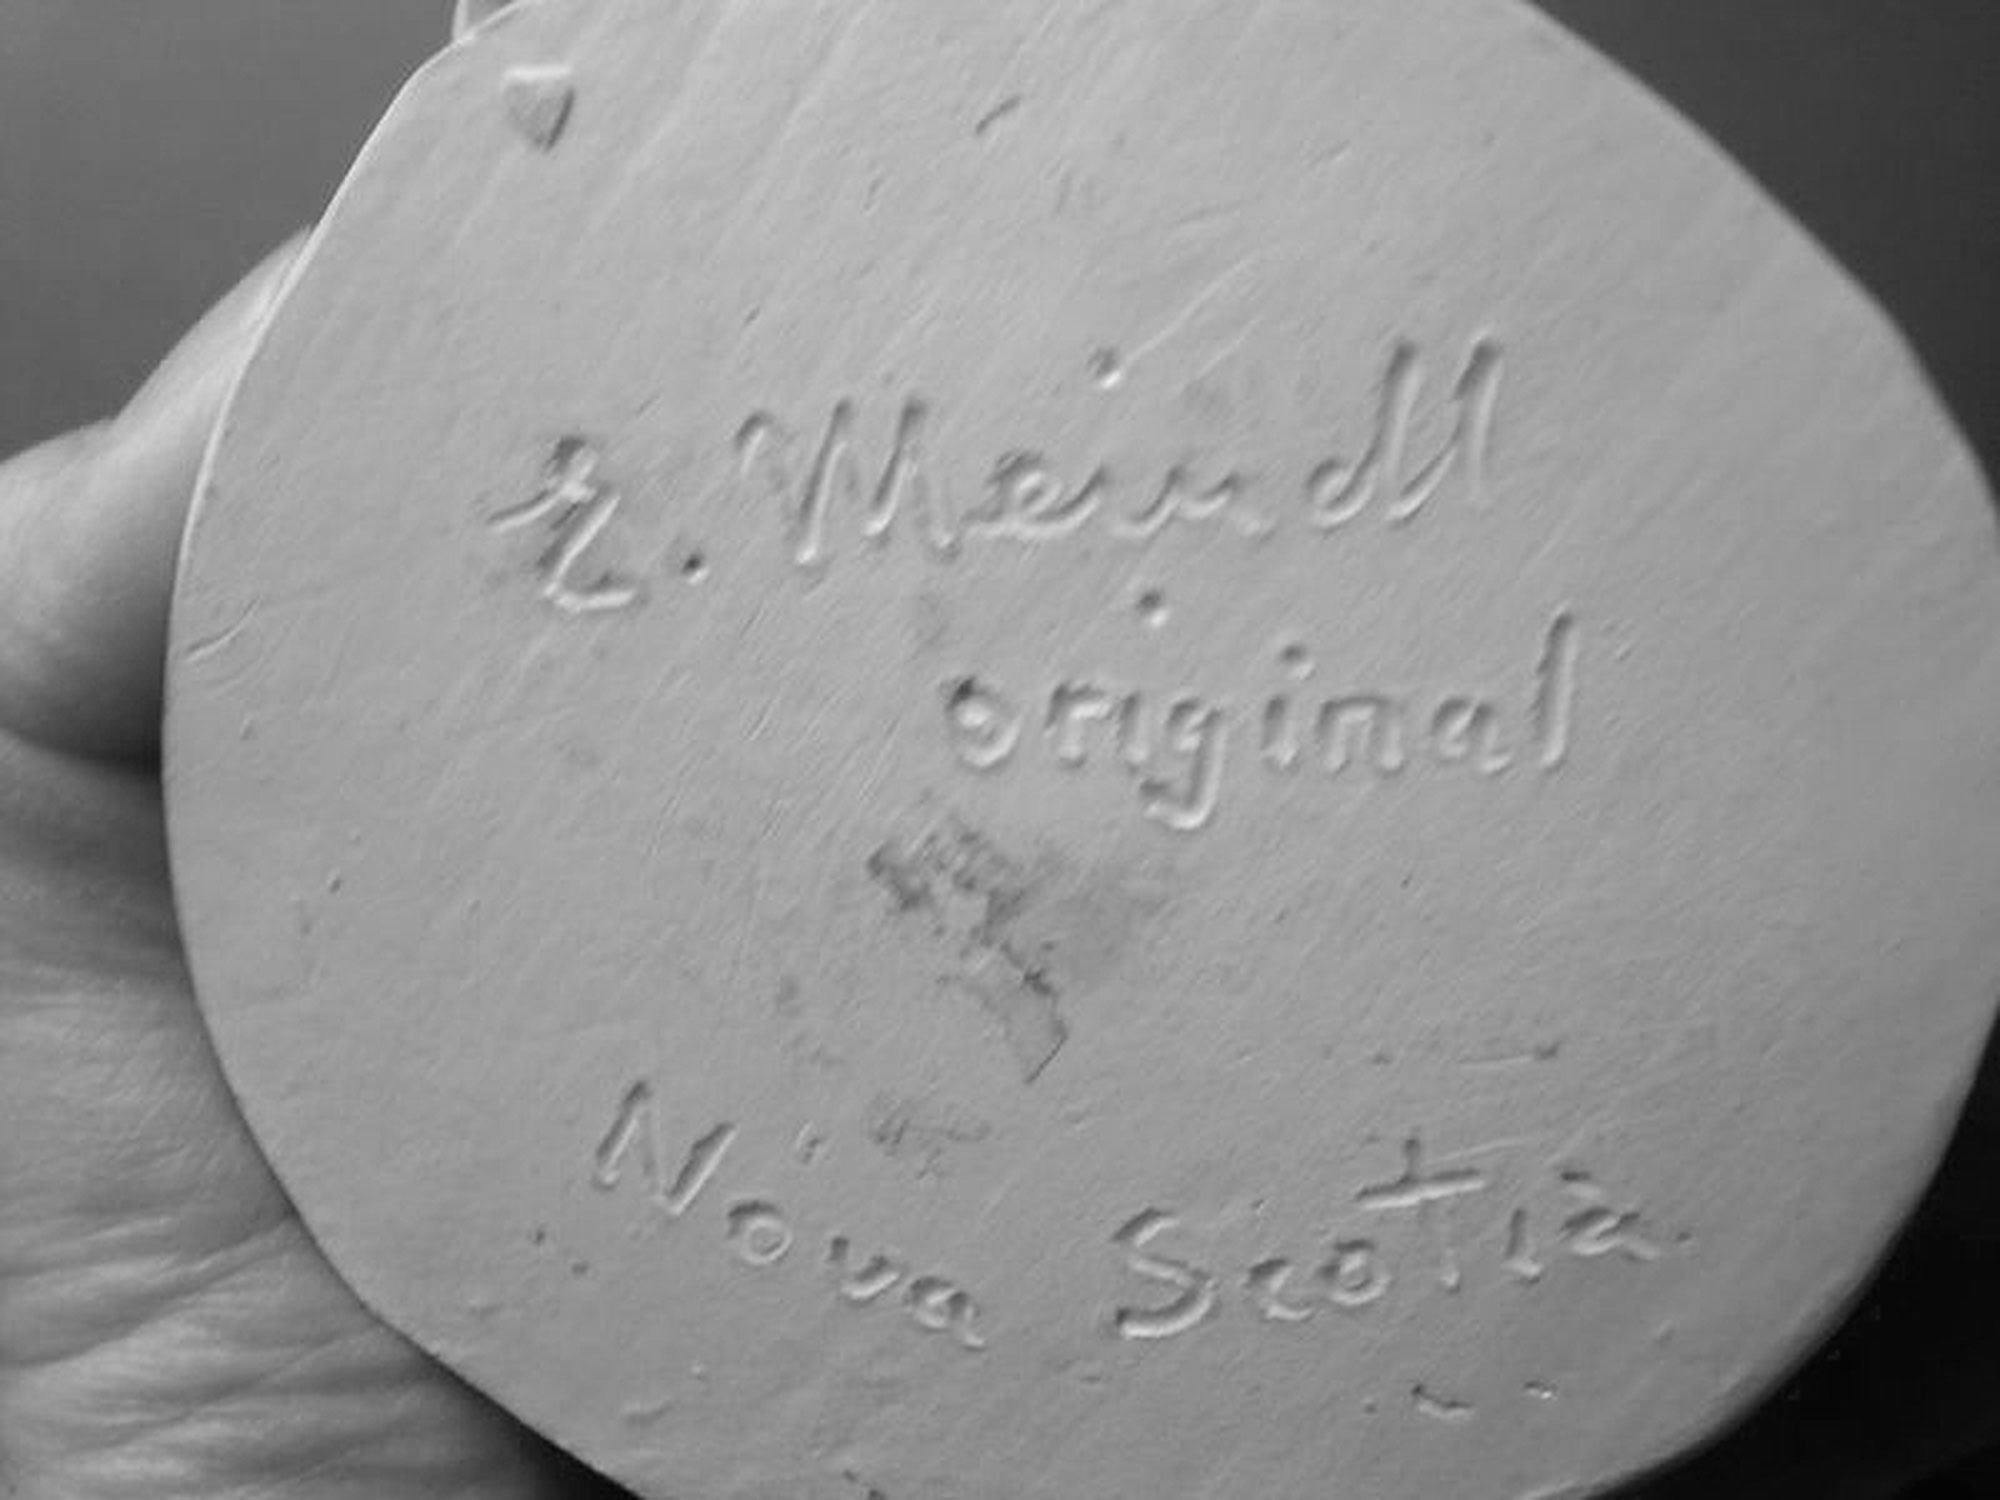 E. Meindl
original
Nova Scotia